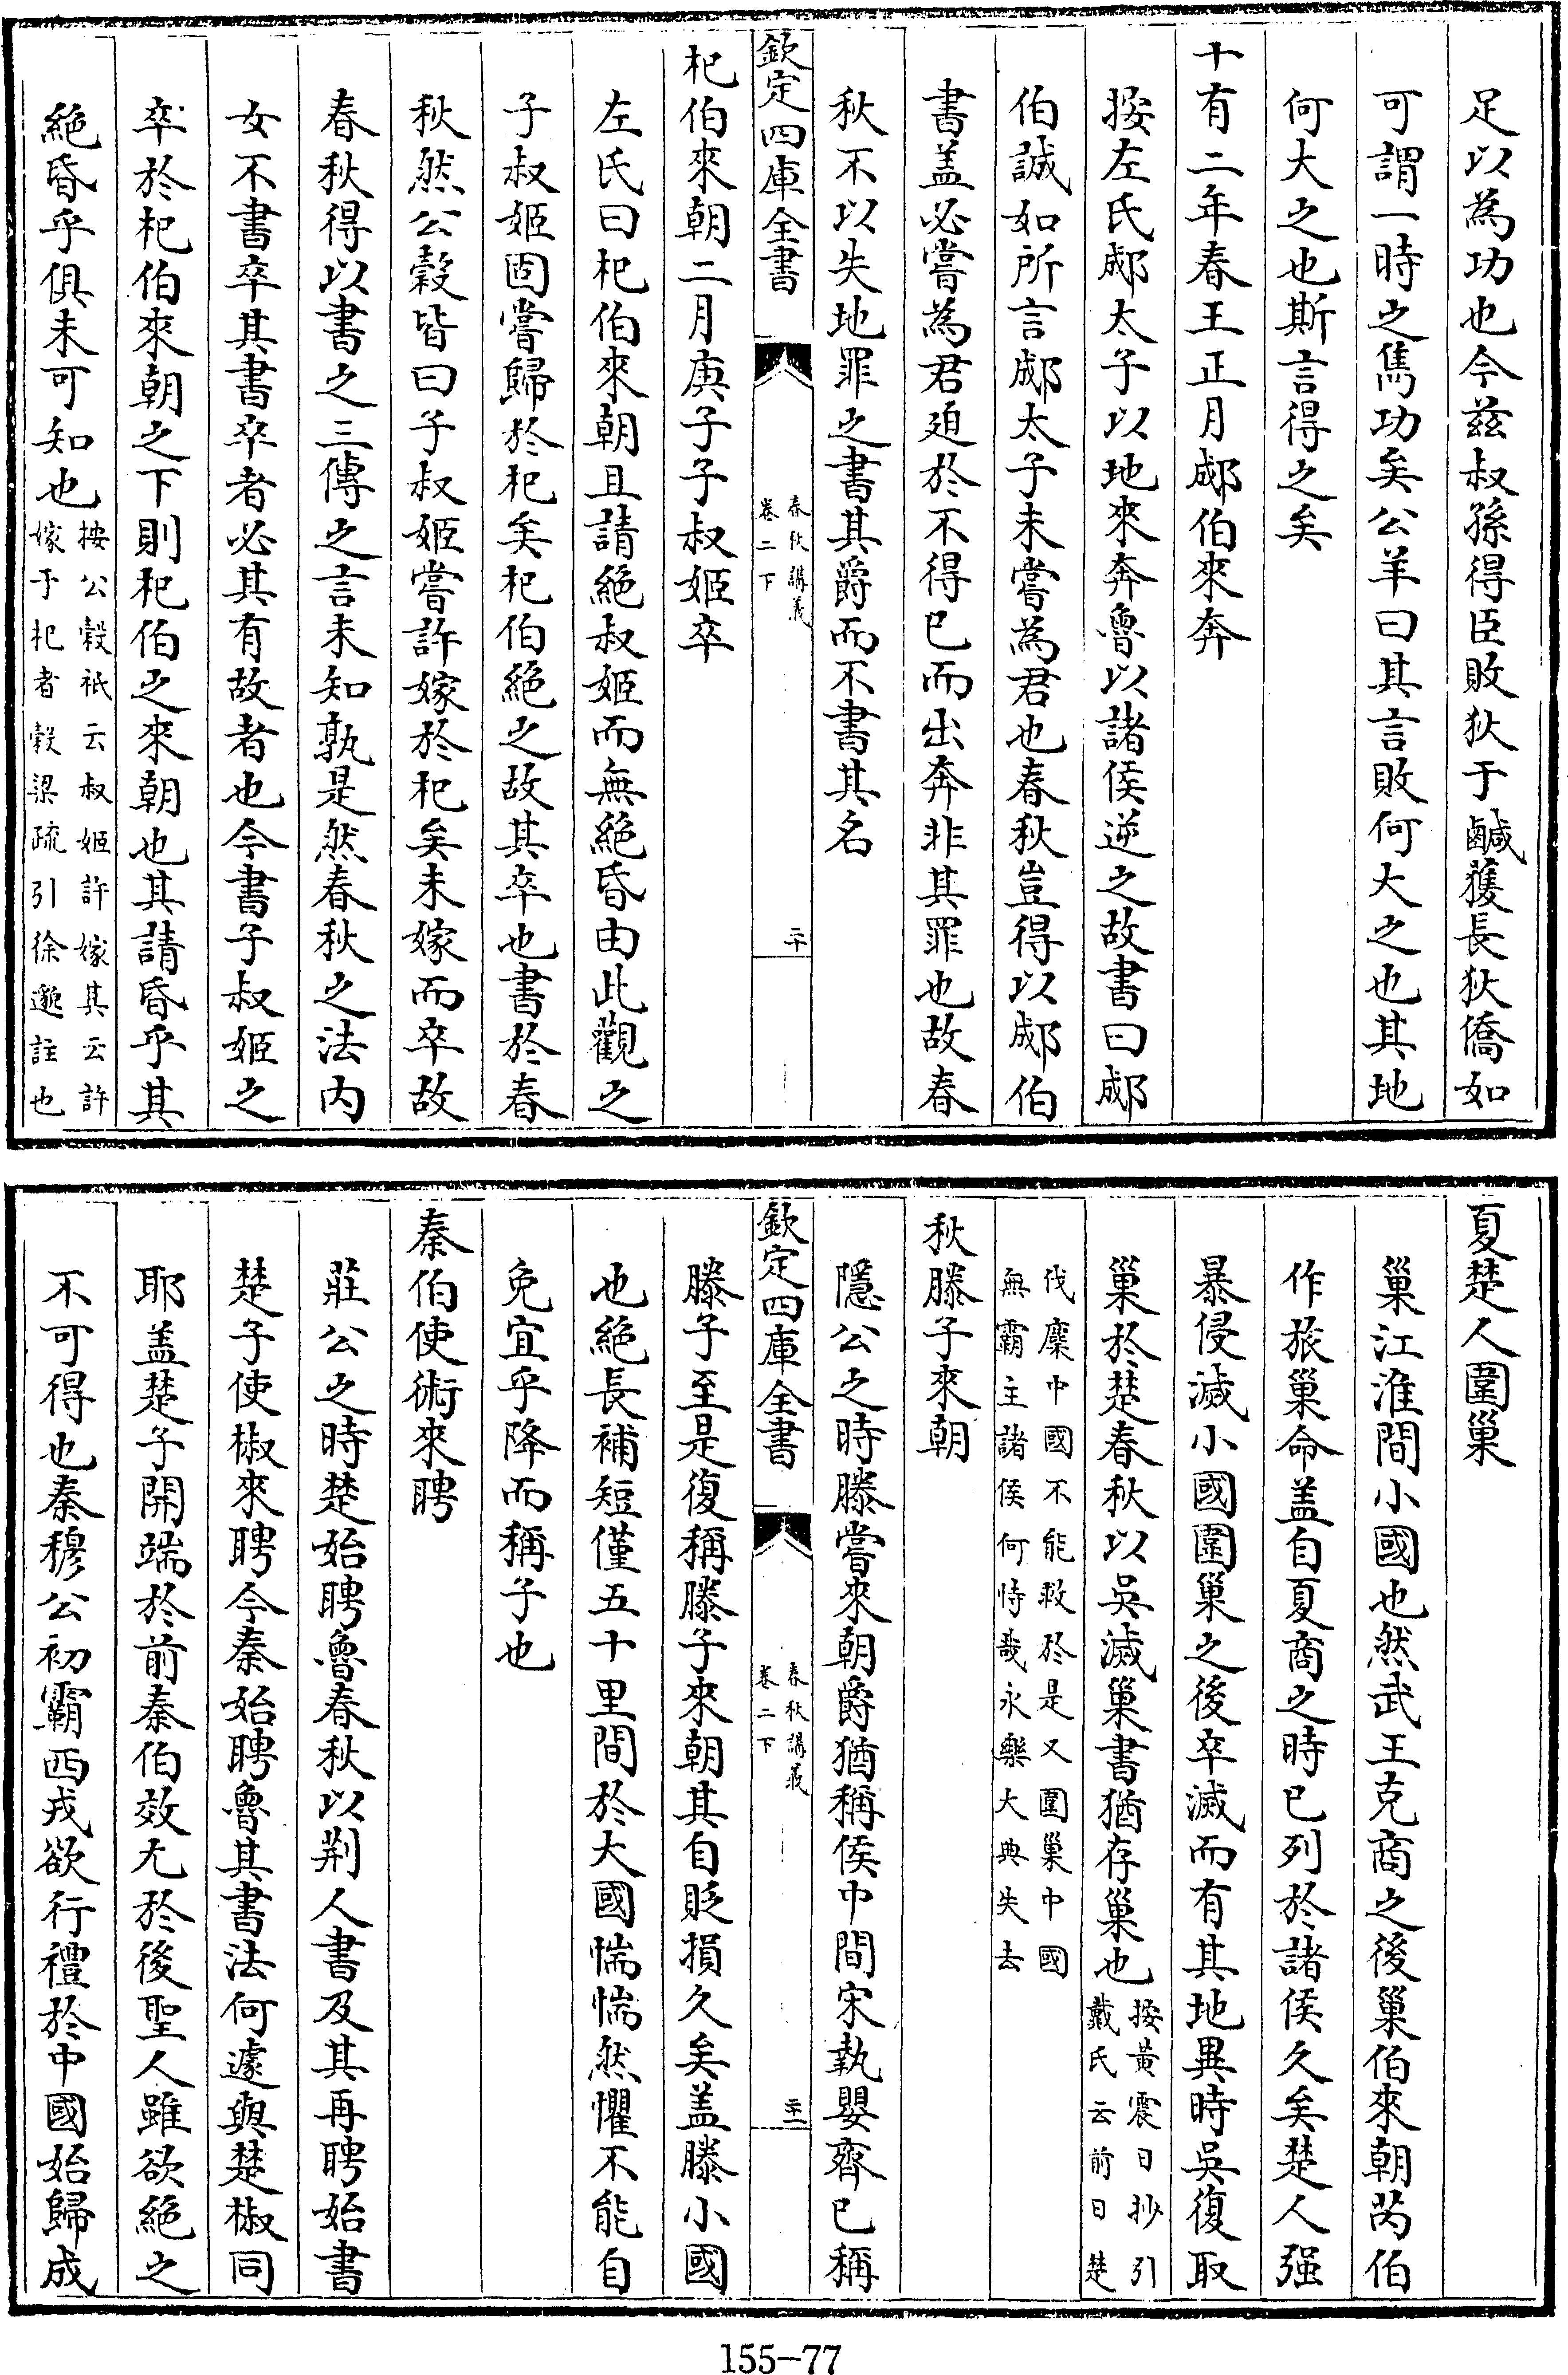 足以為功也今茲叔孫得臣敗狄于鹹獲長狄僑如
可謂一時之雋功矣公羊曰其言敗何大之也其地
何大之也斯言得之矣
十有二年春王正月郕伯來奔
按左氏郕太子以地來奔魯以諸侯逆之故書曰郕
伯誠如所言郕太子未嘗為君也春秋豈得以郕伯
書盖必嘗為君廹於不得已而出奔非其罪也故春
秋不以失地罪之書其爵而不書其名
欽定四庫全書
春秋講義
卷二下
二十
杞伯來朝二月庚子子叔姬卒
左氏曰杞伯來朝且請絶叔姬而無絶昏由此觀之
子叔姬固嘗歸於杞矣杞伯絶之故其卒也書於春
秋然公穀皆曰子叔姬嘗許嫁於杞矣未嫁而卒故
春秋得以書之三傳之言未知孰是然春秋之法内
女不書卒其書卒者必其有故者也今書子叔姬之
卒於杞伯來朝之下則杞伯之來朝也其請昏乎其
絶昏乎俱未可知也
按公穀祇云叔姬許嫁其云許
嫁于杞者穀梁疏引徐邈註也
夏楚人圍巢
巢江淮間小國也然武王克商之後巢伯來朝芮伯
作旅巢命盖自夏商之時已列於諸侯久矣楚人强
暴侵滅小國圍巢之後卒滅而有其地異時吳復取
巢於楚春秋以吳滅巢書猶存巢也
按黃震日抄引
戴氏云前日楚
伐麇中國不能救於是又圍巢中國
無霸主諸侯何恃哉永樂大典失去
秋滕子來朝
隱公之時滕嘗來朝爵猶稱侯中間宋執嬰齊已稱
欽定四庫全書
春秋講義
卷二下
二十一
滕子至是復稱滕子來朝其自貶損久矣盖滕小國
也絶長補短僅五十里間於大國惴惴然懼不能自
免宜乎降而稱子也
秦伯使術來聘
莊公之時楚始聘魯春秋以荆人書及其再聘始書
楚子使椒來聘今秦始聘魯其書法何遽與楚椒同
耶盖楚子開端於前秦伯效尤於後聖人雖欲絶之
不可得也秦穆公初霸西戎欲行禮於中國始歸成
155-77